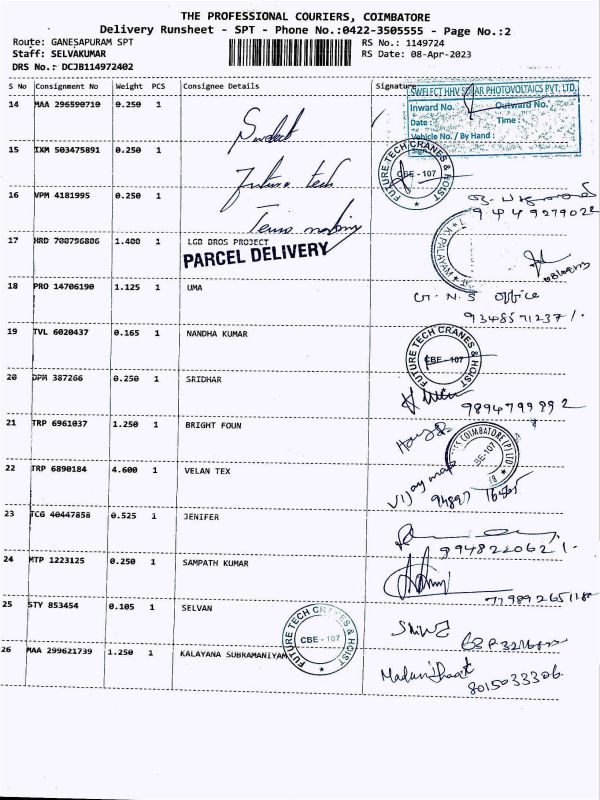 THE PROFESSIONAL COURIERS, COIMBATORE
Delivery Runsheet - SPT - Phone No.:0422-3505555 - Page No.:2
Route: GANESAPURAM SPT
RS No.: 1149724
Staff: SELVAKUMAR
RS Date: 08-Apr-2023
DRS No.: DCJB114972402
S No Consignment No Weight PCS Consignee Details Signature
SWELECT HHV SOLAR PHOTOVOLTAICS PVT. LTD.
Inward No. Outward No.
Date : Time :
Vehicle No. / By Hand :
14 MAA 296590710 0.250 1 Swelect
15 IXM 503475891 0.250 1 Future tech
FUTURE TECH CRANES & HOIST CBE - 107
16 VPM 4181995 0.250 1
17 HRD 700796806 1.400 1 LGB BROS PROJECT
PARCEL DELIVERY
K. PALAYAM
18 PRO 14706190 1.125 1 UMA
G.N.S office
9348571237/.
19 TVL 6020437 0.165 1 NANDHA KUMAR
FUTURE TECH CRANES & HOIST CBE - 107
20 DPM 387266 0.250 1 SRIDHAR
9894799892
21 TRP 6961037 1.250 1 BRIGHT FOUN
COIMBATORE (P) LTD CBE-107
22 TRP 6890184 4.600 1 VELAN TEX
23 TCG 40447858 0.525 1 JENIFER
9948220621.
24 MTP 1223125 0.250 1 SAMPATH KUMAR
25 STY 853454 0.105 1 SELVAN
FUTURE TECH CRANES & HOIST CBE - 107
26 MAA 299621739 1.250 1 KALAYANA SUBRAMANIYAM
8015033306